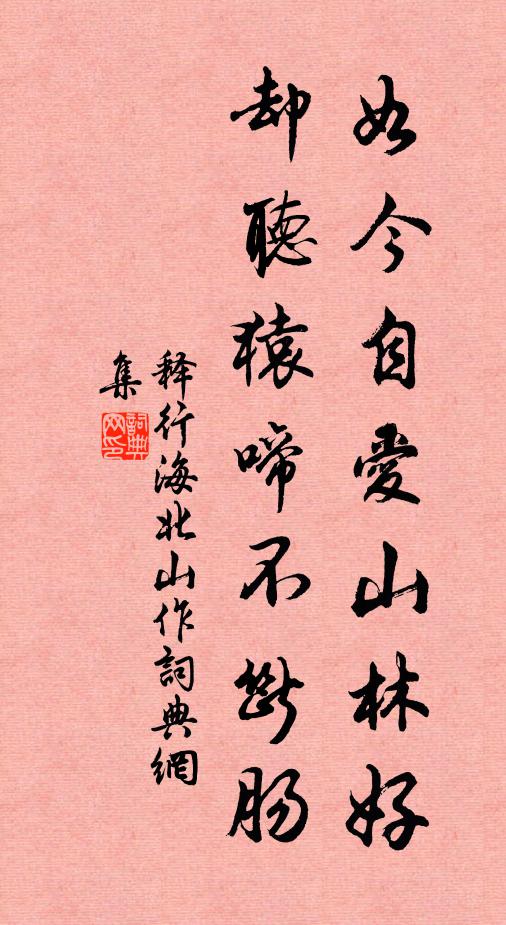 如今自愛山林好
却聽猿啼不斷肠
释行海北山作詞典網
集
詞典网印